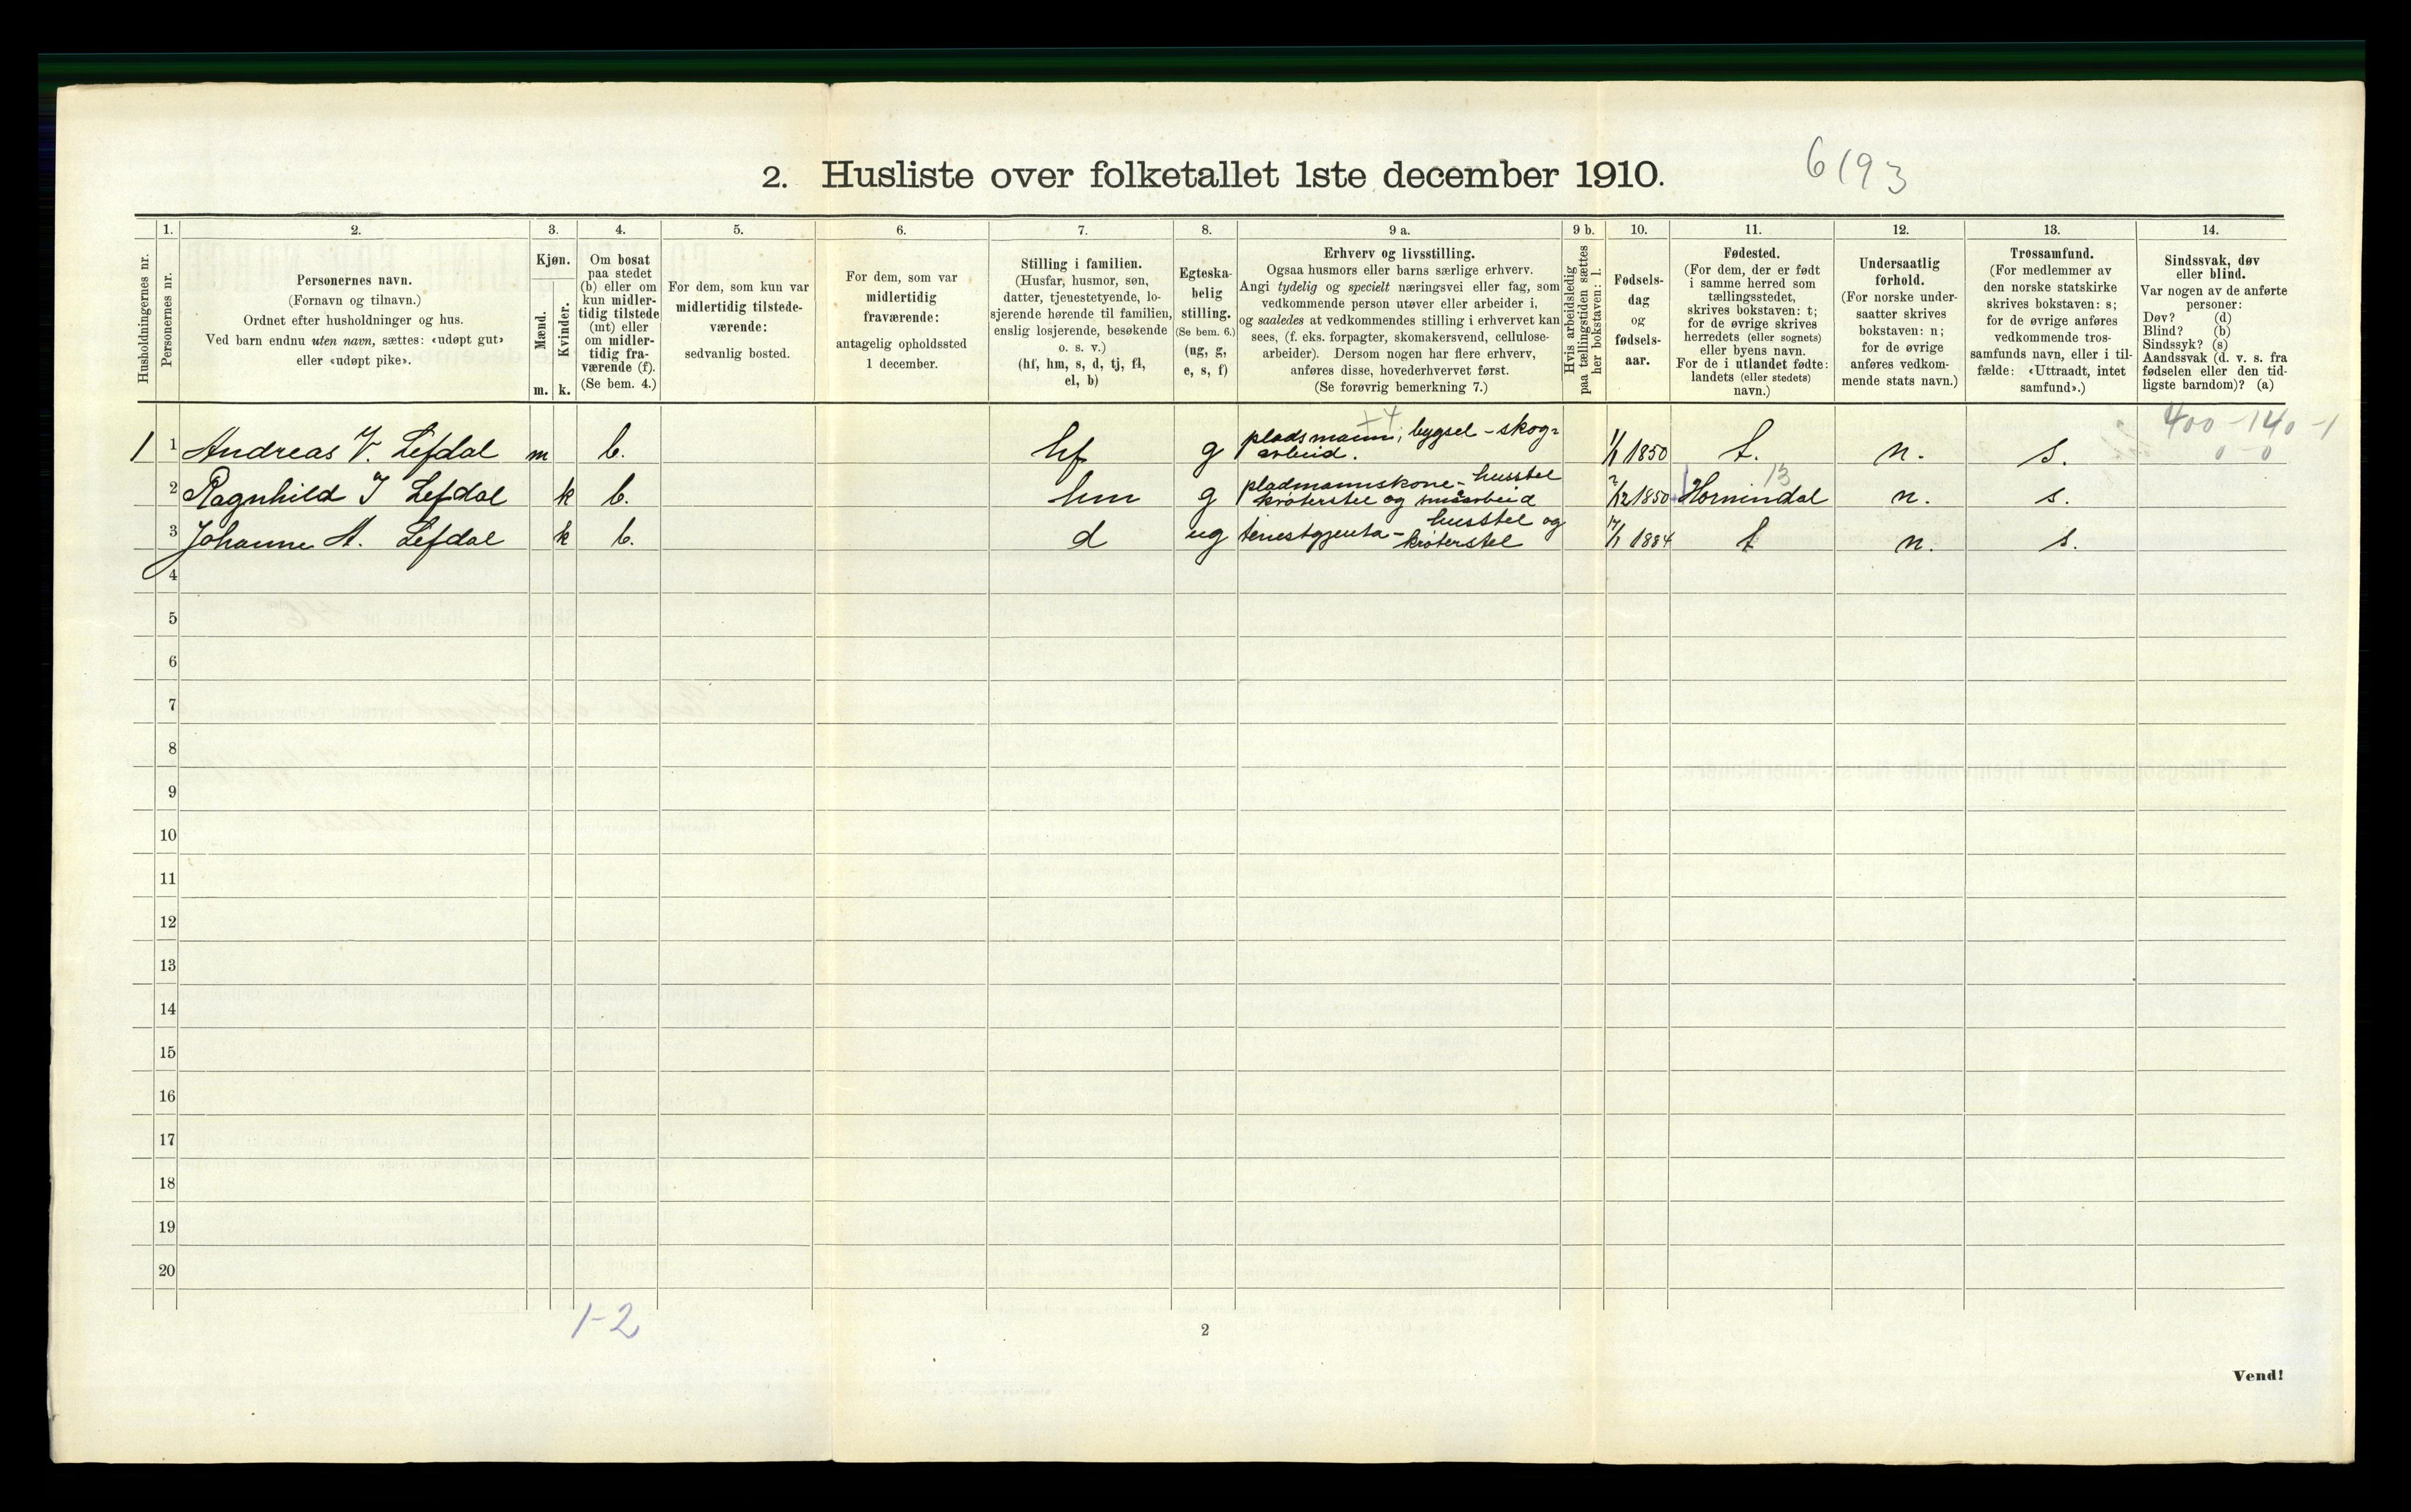 2. Husliste over folketallet 1ste december 1910.
6193
Husholdningernes nr.
1.
Personernes nr.
2.
Personernes navn.
(Fornavn og tilnavn.)
Ordnet efter husholdninger og hus.
Ved barn endnu uten navn, sættes: «udøpt gut»
eller «udøpt pike».
3.
Kjøn.
Mænd.
Kvinder.
m. k.
4.
Om bosat
paa stedet
(b) eller om
kun midler-
tidig tilstede
(mt) eller
om midler-
tidig fra-
værende (f).
(Se bem. 4.)
5.
For dem, som kun var
midlertidig tilstede-
værende:
sedvanlig bosted.
6.
For dem, som var
midlertidig
fraværende:
antagelig opholdssted
1 december.
7.
Stilling i familien.
(Husfar, husmor, søn,
datter, tjenestetyende, lo-
sjerende hørende til familien,
enslig losjerende, besøkende
o. s. v.)
(hf, hm, s, d, tj, fl,
el, b)
8.
Egteska-
belig
stilling.
(Se bem. 6.)
(ug, g,
e, s, f)
9 a.
Erhverv og livsstilling.
Ogsaa husmors eller barns særlige erhverv.
Angi tydelig og specielt næringsvei eller fag, som
vedkommende person utøver eller arbeider i,
og saaledes at vedkommendes stilling i erhvervet kan
sees, (f. eks. forpagter, skomakersvend, cellulose-
arbeider). Dersom nogen har flere erhverv,
anføres disse, hovederhvervet først.
(Se forøvrig bemerkning 7.)
9 b.
Hvis arbeidsledig
paa tællingstiden sættes
her bokstaven: l.
10.
Fødsels-
dag
og
fødsels-
aar.
11.
Fødested.
(For dem, der er født
i samme herred som
tællingsstedet,
skrives bokstaven: t;
for de øvrige skrives
herredets (eller sognets)
eller byens navn.
For de i utlandet fødte:
landets (eller stedets)
navn.)
12.
Undersaatlig
forhold.
(For norske under-
saatter skrives
bokstaven: n;
for de øvrige
anføres vedkom-
mende stats navn.)
13.
Trossamfund.
(For medlemmer av
den norske statskirke
skrives bokstaven: s;
for de øvrige anføres
vedkommende tros-
samfunds navn, eller i til-
fælde: «Uttraadt, intet
samfund».)
14.
Sindssvak, døv
eller blind.
Var nogen av de anførte
personer:
Døv? (d)
Blind? (b)
Sindssyk? (s)
Aandssvak (d. v. s. fra
fødselen eller den tid-
ligste barndom)? (a)
400-140-1
0-0
1 1 Andreas V. Lefdal m b. hf g pladsmann, bygsel - skog=
arbeid. 1/1 1850 t. n. s.
13
2 Ragnhild I Lefdal k b. hm g pladmannskone - husstel
krøterstel og småarbeid /12 1850 Hornindal n. s.
3 Johanne A. Lefdal k b. d ug tenestgjenta - husstel og
krøterstel 17/1 1884 t n. s.
4
5
6
7
8
9
10
11
12
13
14
15
16
17
18
19
20
1-2
2
Vend!